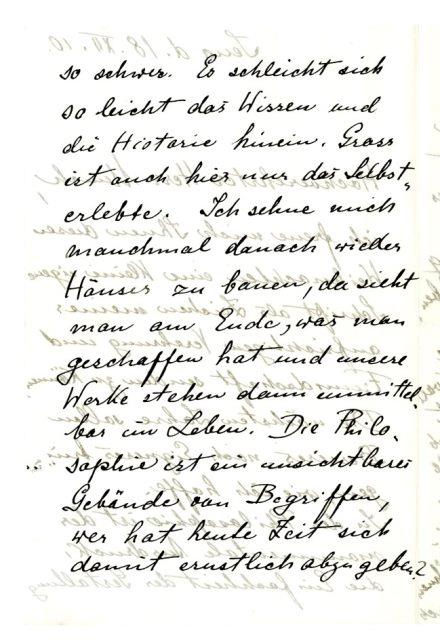 so schwer. Es schleicht sich
so leicht das Wissen und
die Historie hinein. Gross
ist auch hier nur das Selbst-
erlebte. Ich sehne mich
manchmal danach wieder
Häuser zu bauen, da sieht
man am Ende, was man
geschaffen hat und unsere
Werke stehen dann unmittel-
bar im Leben. Die Philo-
sophie ist ein unsichtbares
Gebäude von Begriffen,
wer hat heute Zeit sich
damit ernstlich abzugeben?